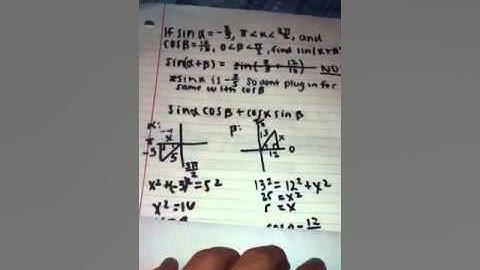 If sin α = -3/5, π < α < 3π/2, and
cos β = 12/13, 0 < β < π/2, find sin(α + β
sin(α+β) = sin(-3/5 + 12/13) NO
*sin α is -3/5 so dont plug in for
same with cos β
sin α cos β + cos α sin β
α:
β:
π/2
-x
π
-3
5
3π/2
13
x
12
0
x² + (-3)² = 5²
13² = 12² + x²
x² = 16
25 = x²
5 = x
cos β = 12